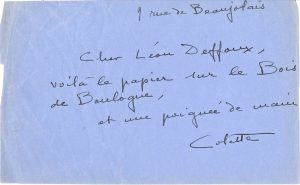 9 rue de Beaujolais
Cher Léon Deffoux,
voilà le papier sur le Bois
de Boulogne,
et une poignée de main
Colette